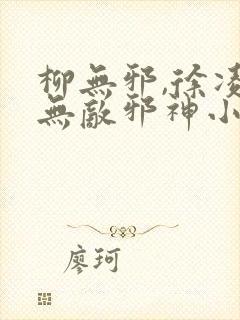 柳無邪,徐凌
無敵邪神小
廖珂